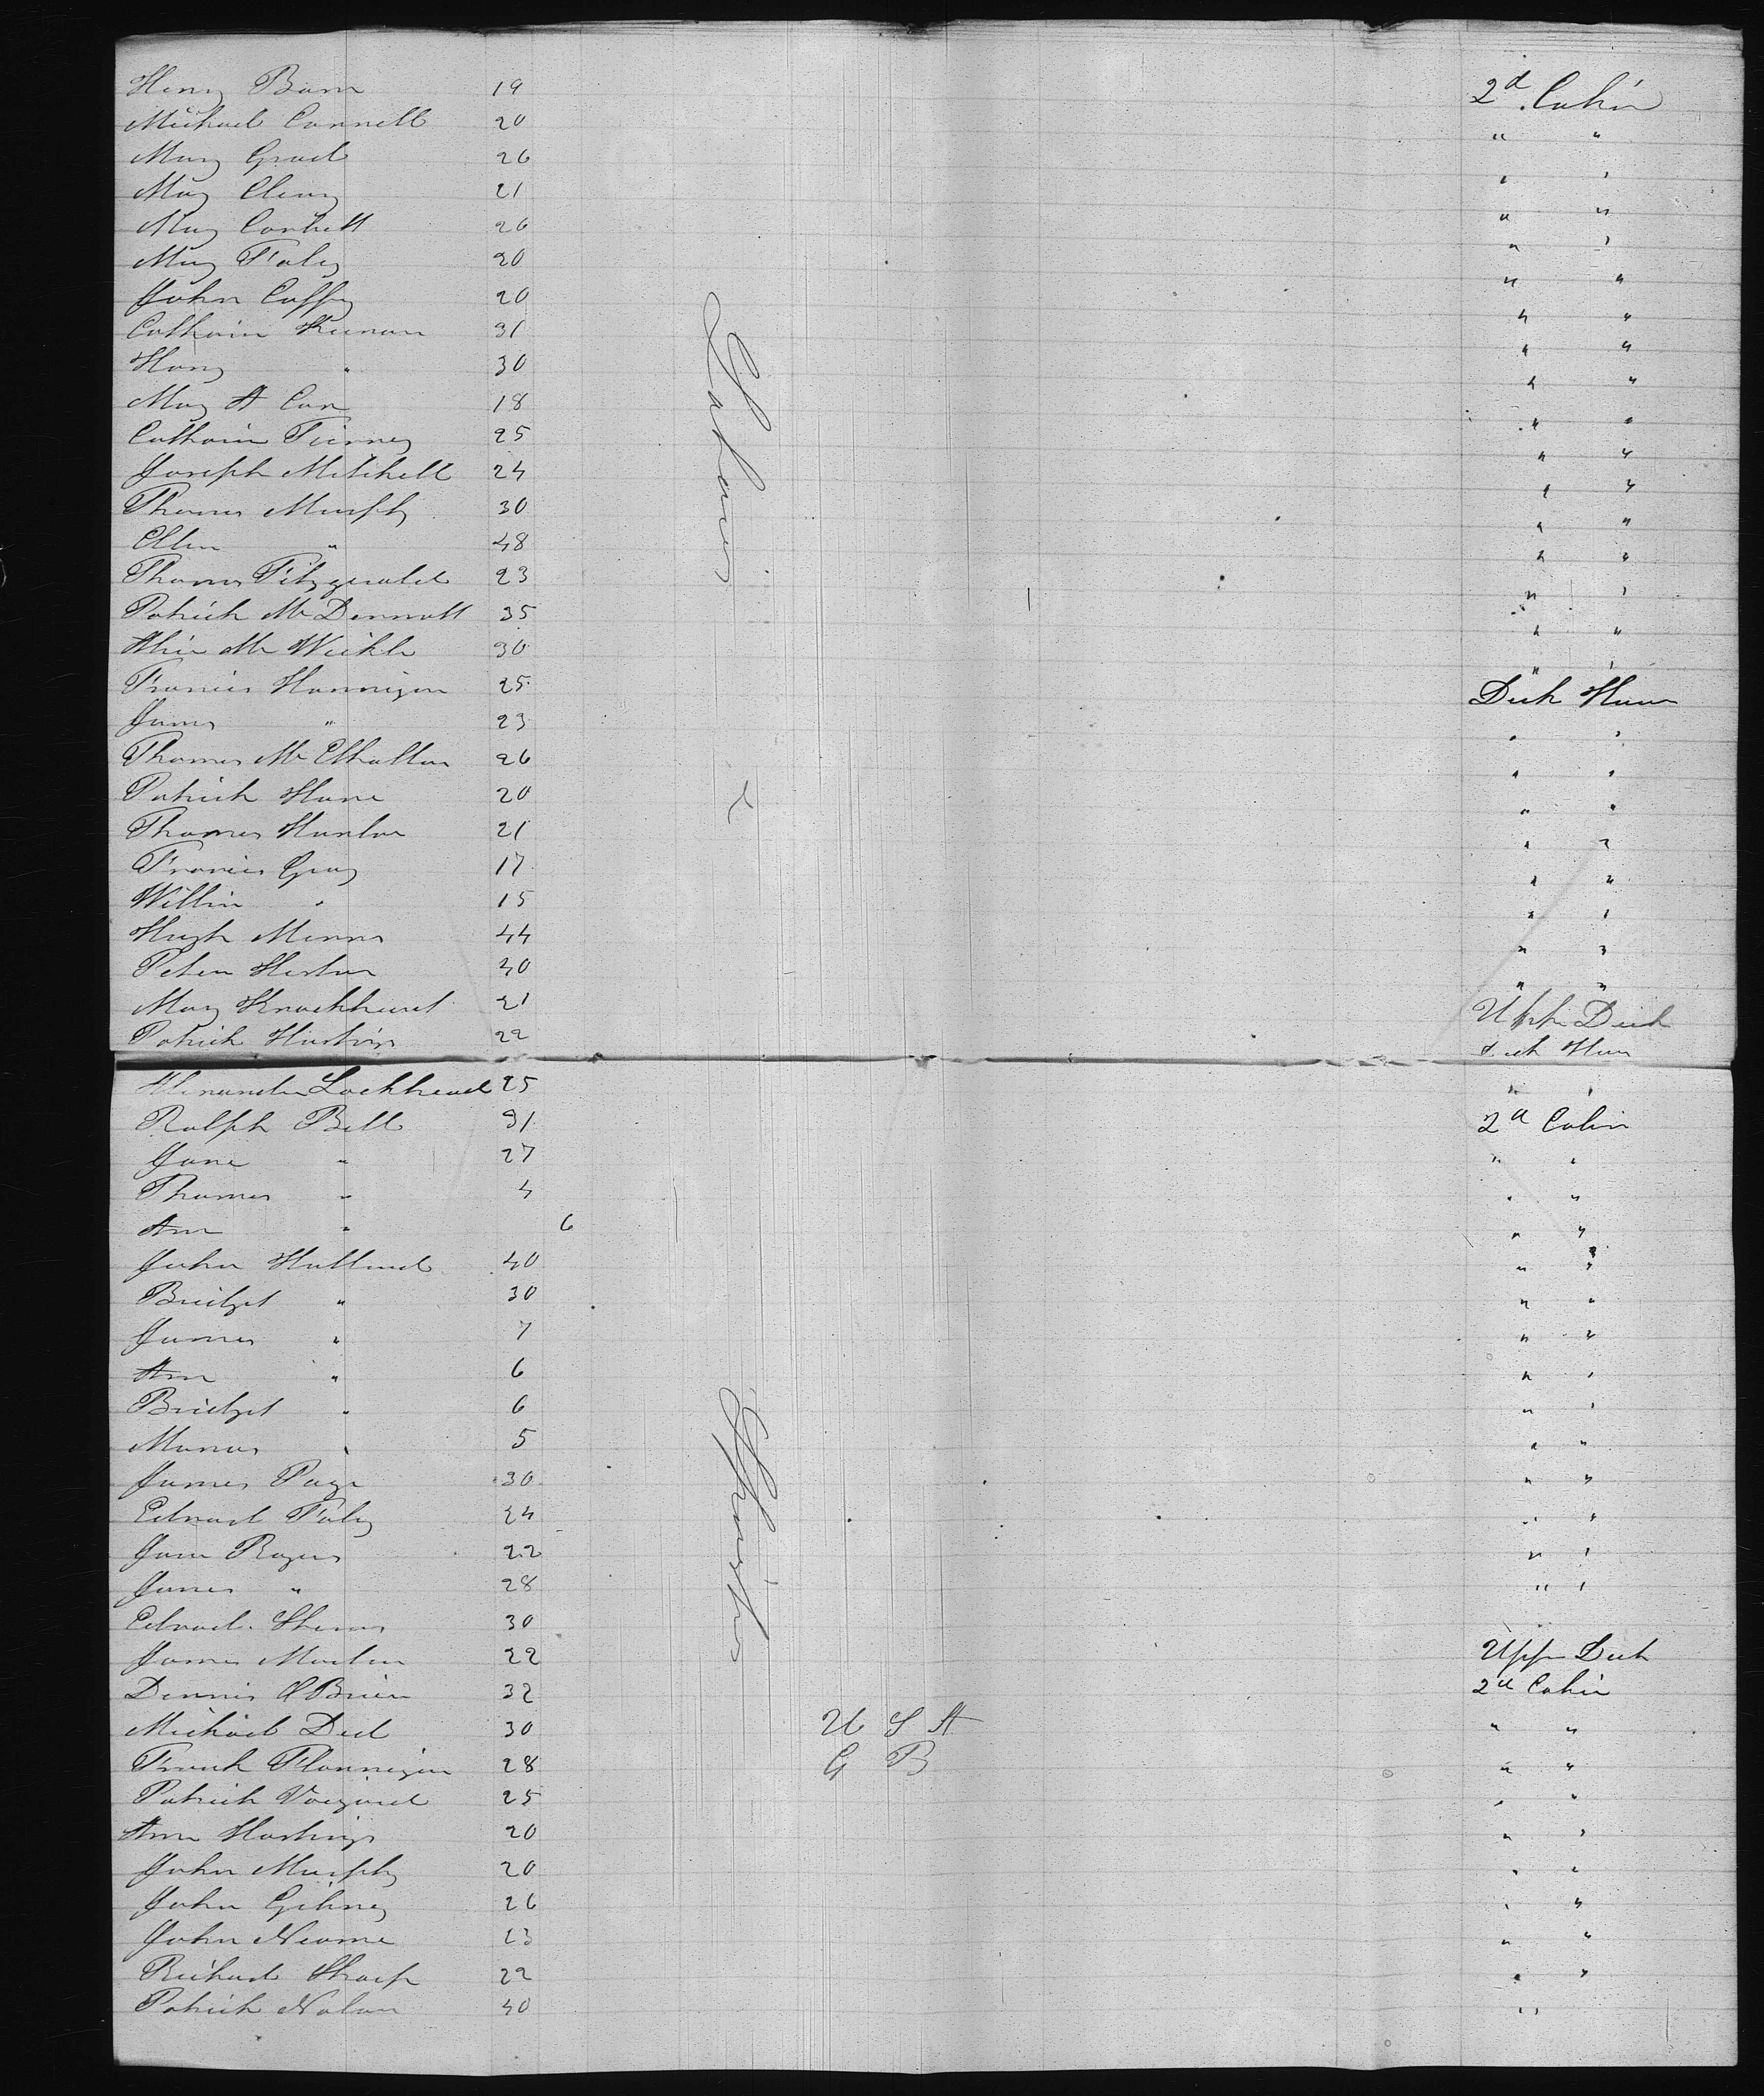 Henry Barn 19 2d Cabin
Michael Connell 20 " "
Mary Grad 26 " "
Mary Cleary 21 " "
Mary Corbett 26 " "
Mary Foley 20 " "
John Coffy 20 " "
Catharin Keenan 31 " "
Harry " 30 " "
Mary A Carr 18 " "
Catharin Tierney 25 " "
Joseph Mitchell 24 " "
Thomas Murphy 30 " "
Ellen " 48 " "
Thomas Fitzgerald 23 " "
Patrick McDermott 35 " "
Alice Mc 30 " "
Francis Hannigan 25 Deck House
James " 23 " "
Thomas Mc 26 " "
Patrick Hare 20 " "
Thomas Hanlon 21 " "
Francis Gray 17 " "
Willim " 15 " "
Hugh 44 " "
Peter 40 " "
Mary 21 Upper Deck
Patrick Hastings 22 Deck House
Alexander Lockhead 25 " "
Ralph Bell 31 2d Cabin
Jane " 27 " "
Thomas " 4 " "
Ann " 6 " "
John Holland 40 " "
Bridget " 30 " "
James " 7 " "
Ann " 6 " "
Bridget " 6 " "
Manas " 5 " "
James Page 30 " "
Edward Foley 24 " "
Jane Rogers 22 " "
James " 28 " "
Edward 30
James Martin 22 Upper Deck
Dennis OBrien 32 2d Cabin
Michael 30 U S A " "
Frank Flannigan 28 G B " "
Patrick 25 " "
Ann Hastings 20 " "
John Murphy 20 " "
John Gibney 26 " "
John 23 " "
Richard Sharp 22 " "
Patrick Nolan 40 "
Labourers
&
Spinsters